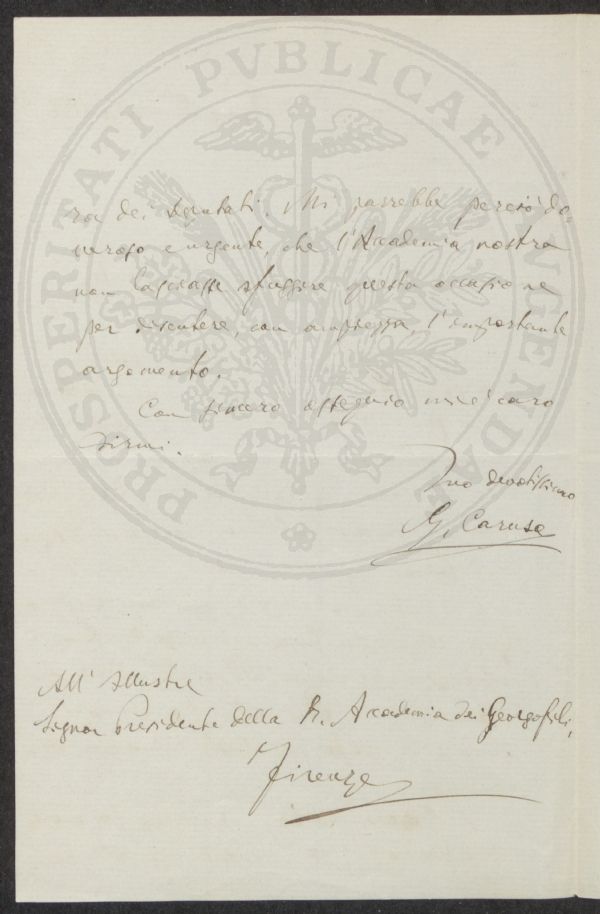 PROSPERITATI PVBLICAE AVGENDAE
ra dei Deputati. Mi parrebbe perciò do-
veroso e urgente, che l'Accademia nostra
non lasciasse sfuggire questa occasione
per discutere, con ampiezza, l'importante
argomento.
Con sincero ossequio mi è caro
dirmi.
Suo devotissimo
G. Caruso
All' Illustre
Signor Presidente della R. Accademia dei Georgofili,
Firenze